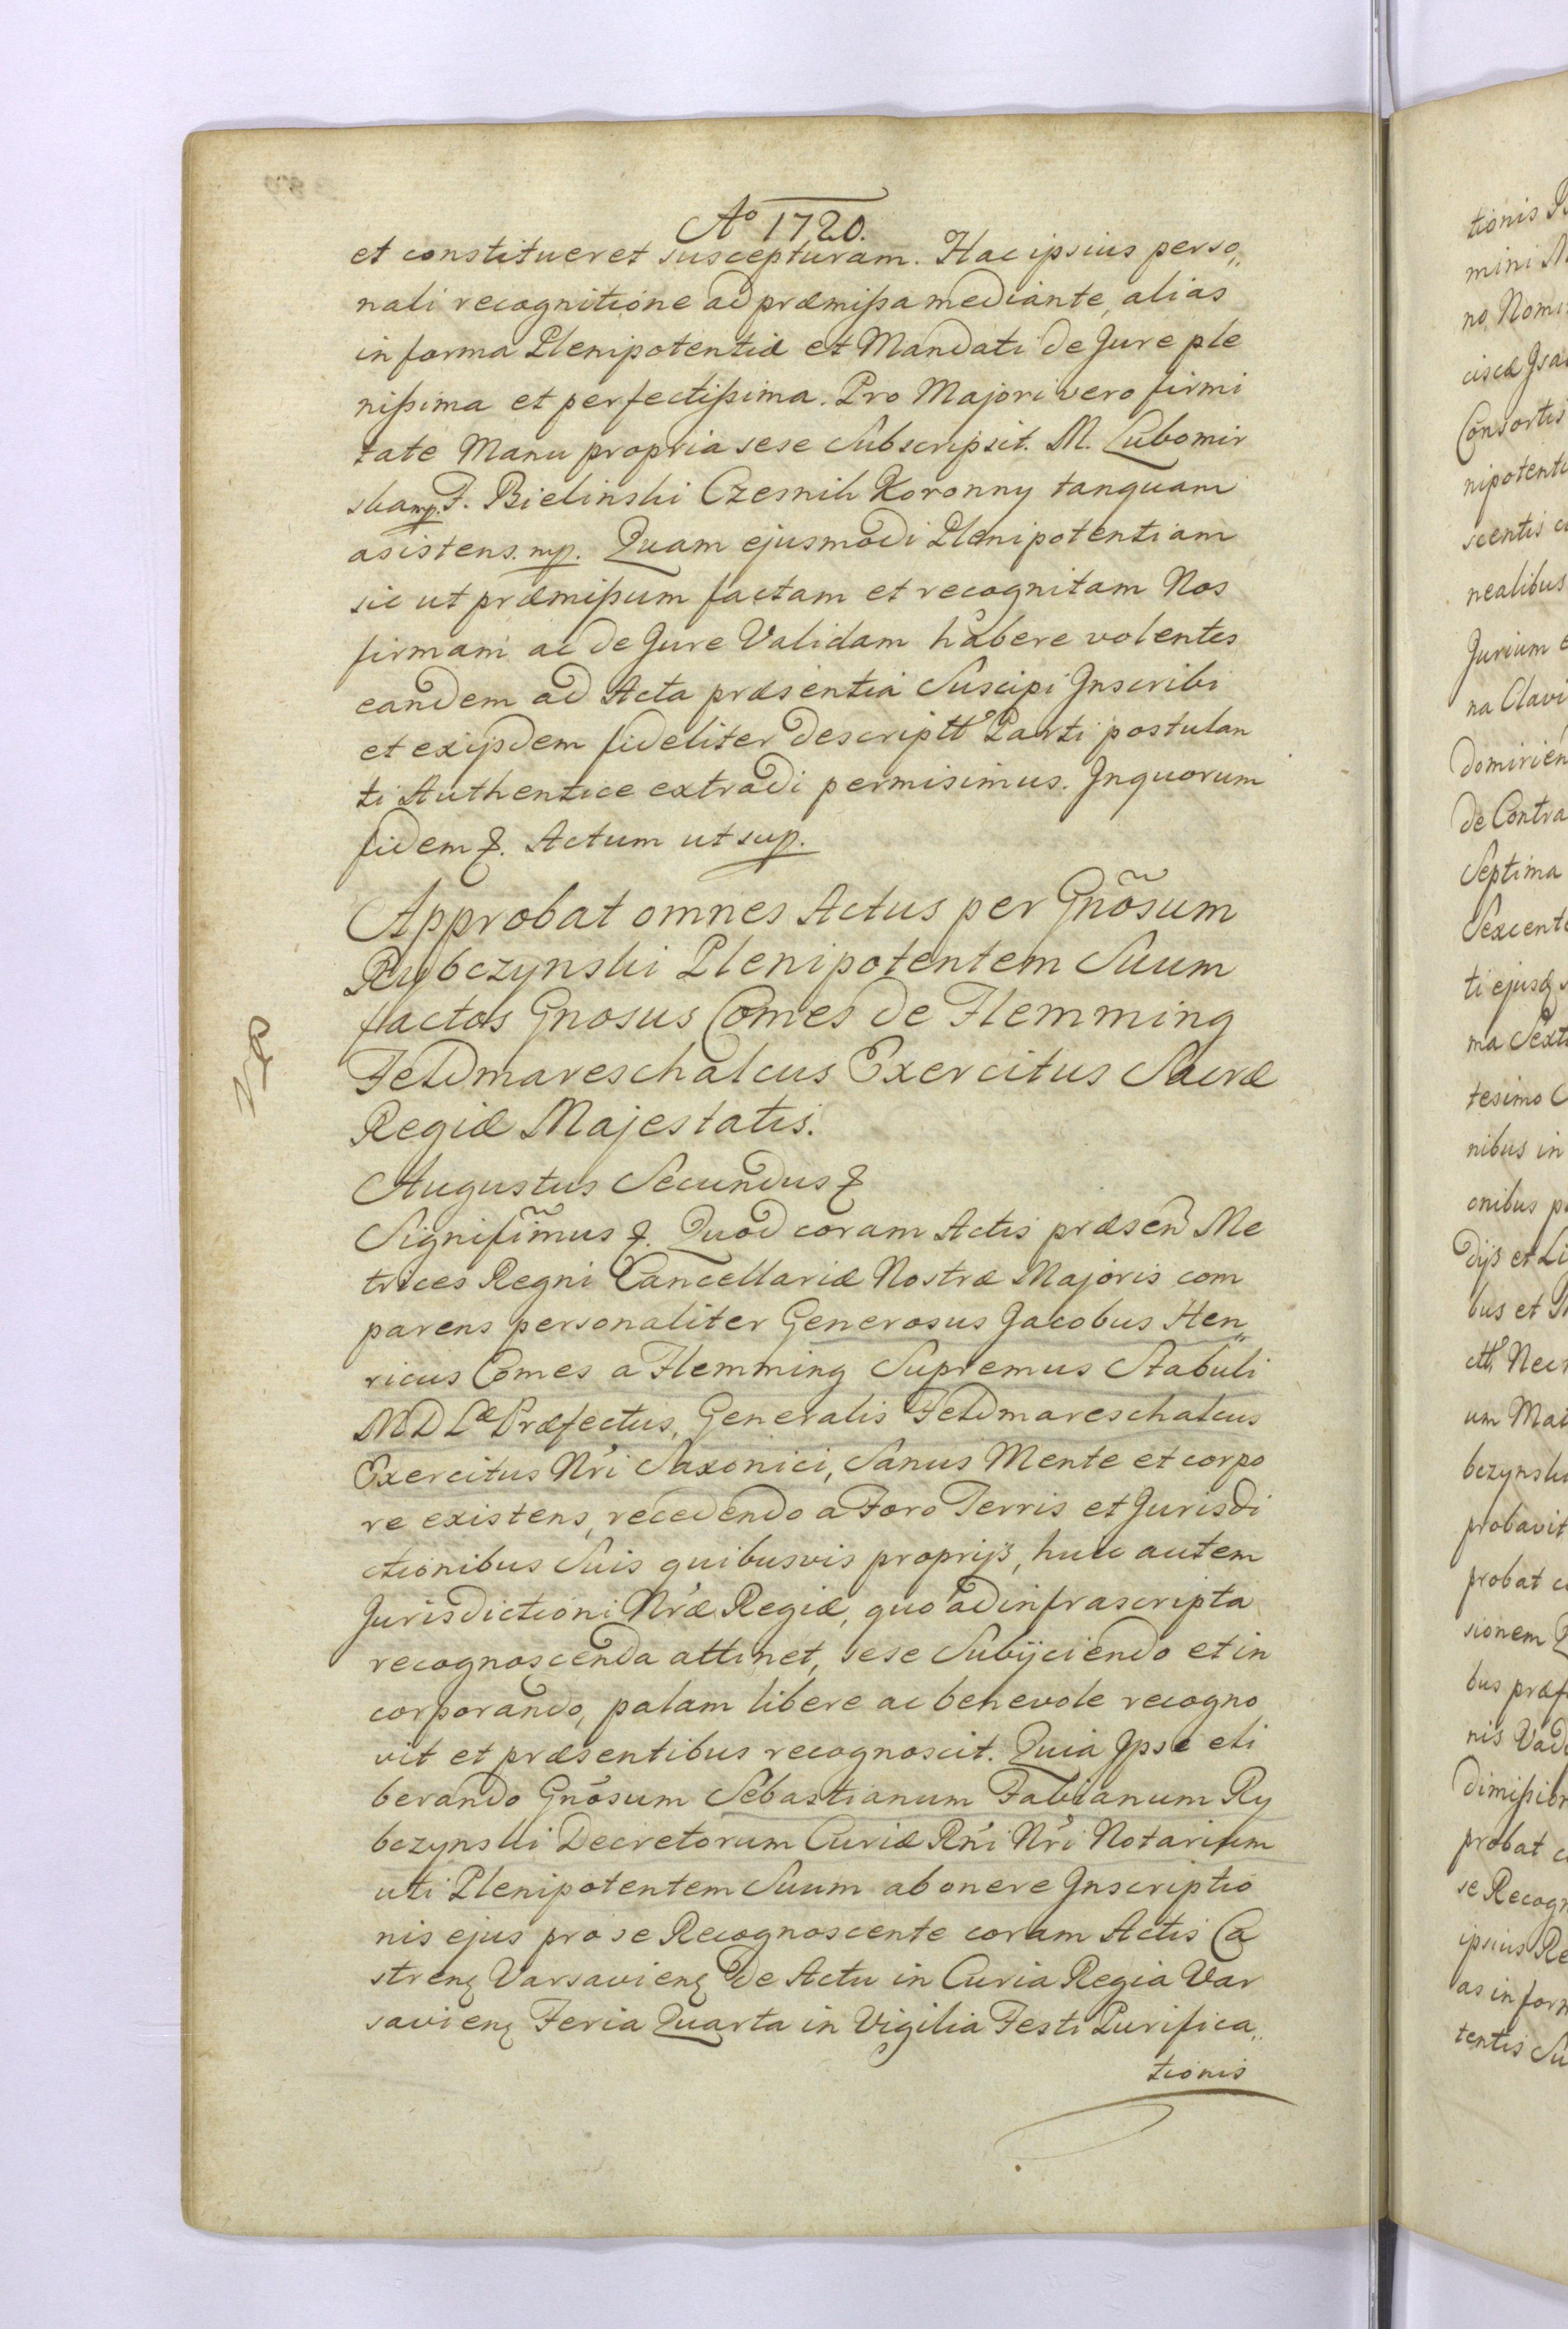 Aº 1720.
et constitueret suscepturam. Hac ipsius perso„
nali recognitione ad præmißa mediante, alias
in forma Plenipotentiæ et Mandati de Jure ple
nißima et perfectißima. Pro Majori vero firmi
tate Manu propria sese Subscripsit. M. Lubomir
ska mp. F. Bielinski Czesnik Koronny tanquam
asistens. mp. Quam ejusmodi Plenipotentiam
sic ut præmißum factam et recognitam Nos
firmam ac de Jure Validam habere volentes
eandem ad Acta præsentia Suscipi Inscribi
et exijsdem fideliter descriptt Parti postulan
ti Authentice extradi permisimus. Inquorum
fidem &. Actum ut sup.
Approbat omnes Actus per Gnõsum
Rybczynski Plenipotentem Suum
factos Gnosus Comes de Flemming
Feldmareschalcus Exercitus Sacræ
Regiæ Majestatis.
Augustus Secundus &
Signifim̃us &. Quod coram Actis præsen Me
trices Regni Cancellariæ Nostræ Majoris com
parens personaliter Generosus Jacobus Hen„
ricus Comes a Flemming Supremus Stabuli
M D Læ Præfectus, Generalis Feldmareschalcus
Exercitus Nri Saxonici, Sanus Mente et corpo
re existens, recedendo a Foro Terris et Jurisdi
ctionibus Suis quibusvis proprijs, huic autem
Jurisdictioni Nræ Regiæ, quo ad infrascripta
recognoscenda attinet, sese Subijciendo et in
corporando, palam libere ac benevole recogno
vit et præsentibus recognoscit. Quia Ipse eli
berando Gnosum Sebastianum Fabianum Ry
bczynski Decretorum Curiæ Rni Nri Notarium
uti Plenipotentem Suum ab onere Inscriptio
nis ejus pro se Recognoscente coram Actis Ca
strenȝ Varsavienȝ de Actu in Curia Regia Var
savienȝ Feria Quarta in Vigilia Festi Purifica„
tionis
tionis
mini
no Nomi
ciscæ Isa
Consortis
nipotenti
scentis
nealibus
Jurium
na Clavi
domirien
de Contra
Septima
Sexcente
ti ejusq
ma Sext
tesimo
nibus in
onibus
dijs et Li
bus et
ctt. Nec
um Mat
bczynski
probavit
probat
sionem
bus præf
nis Vad
dimißion
probat
se Recogn
ipsius Re
as in form
tentis Su